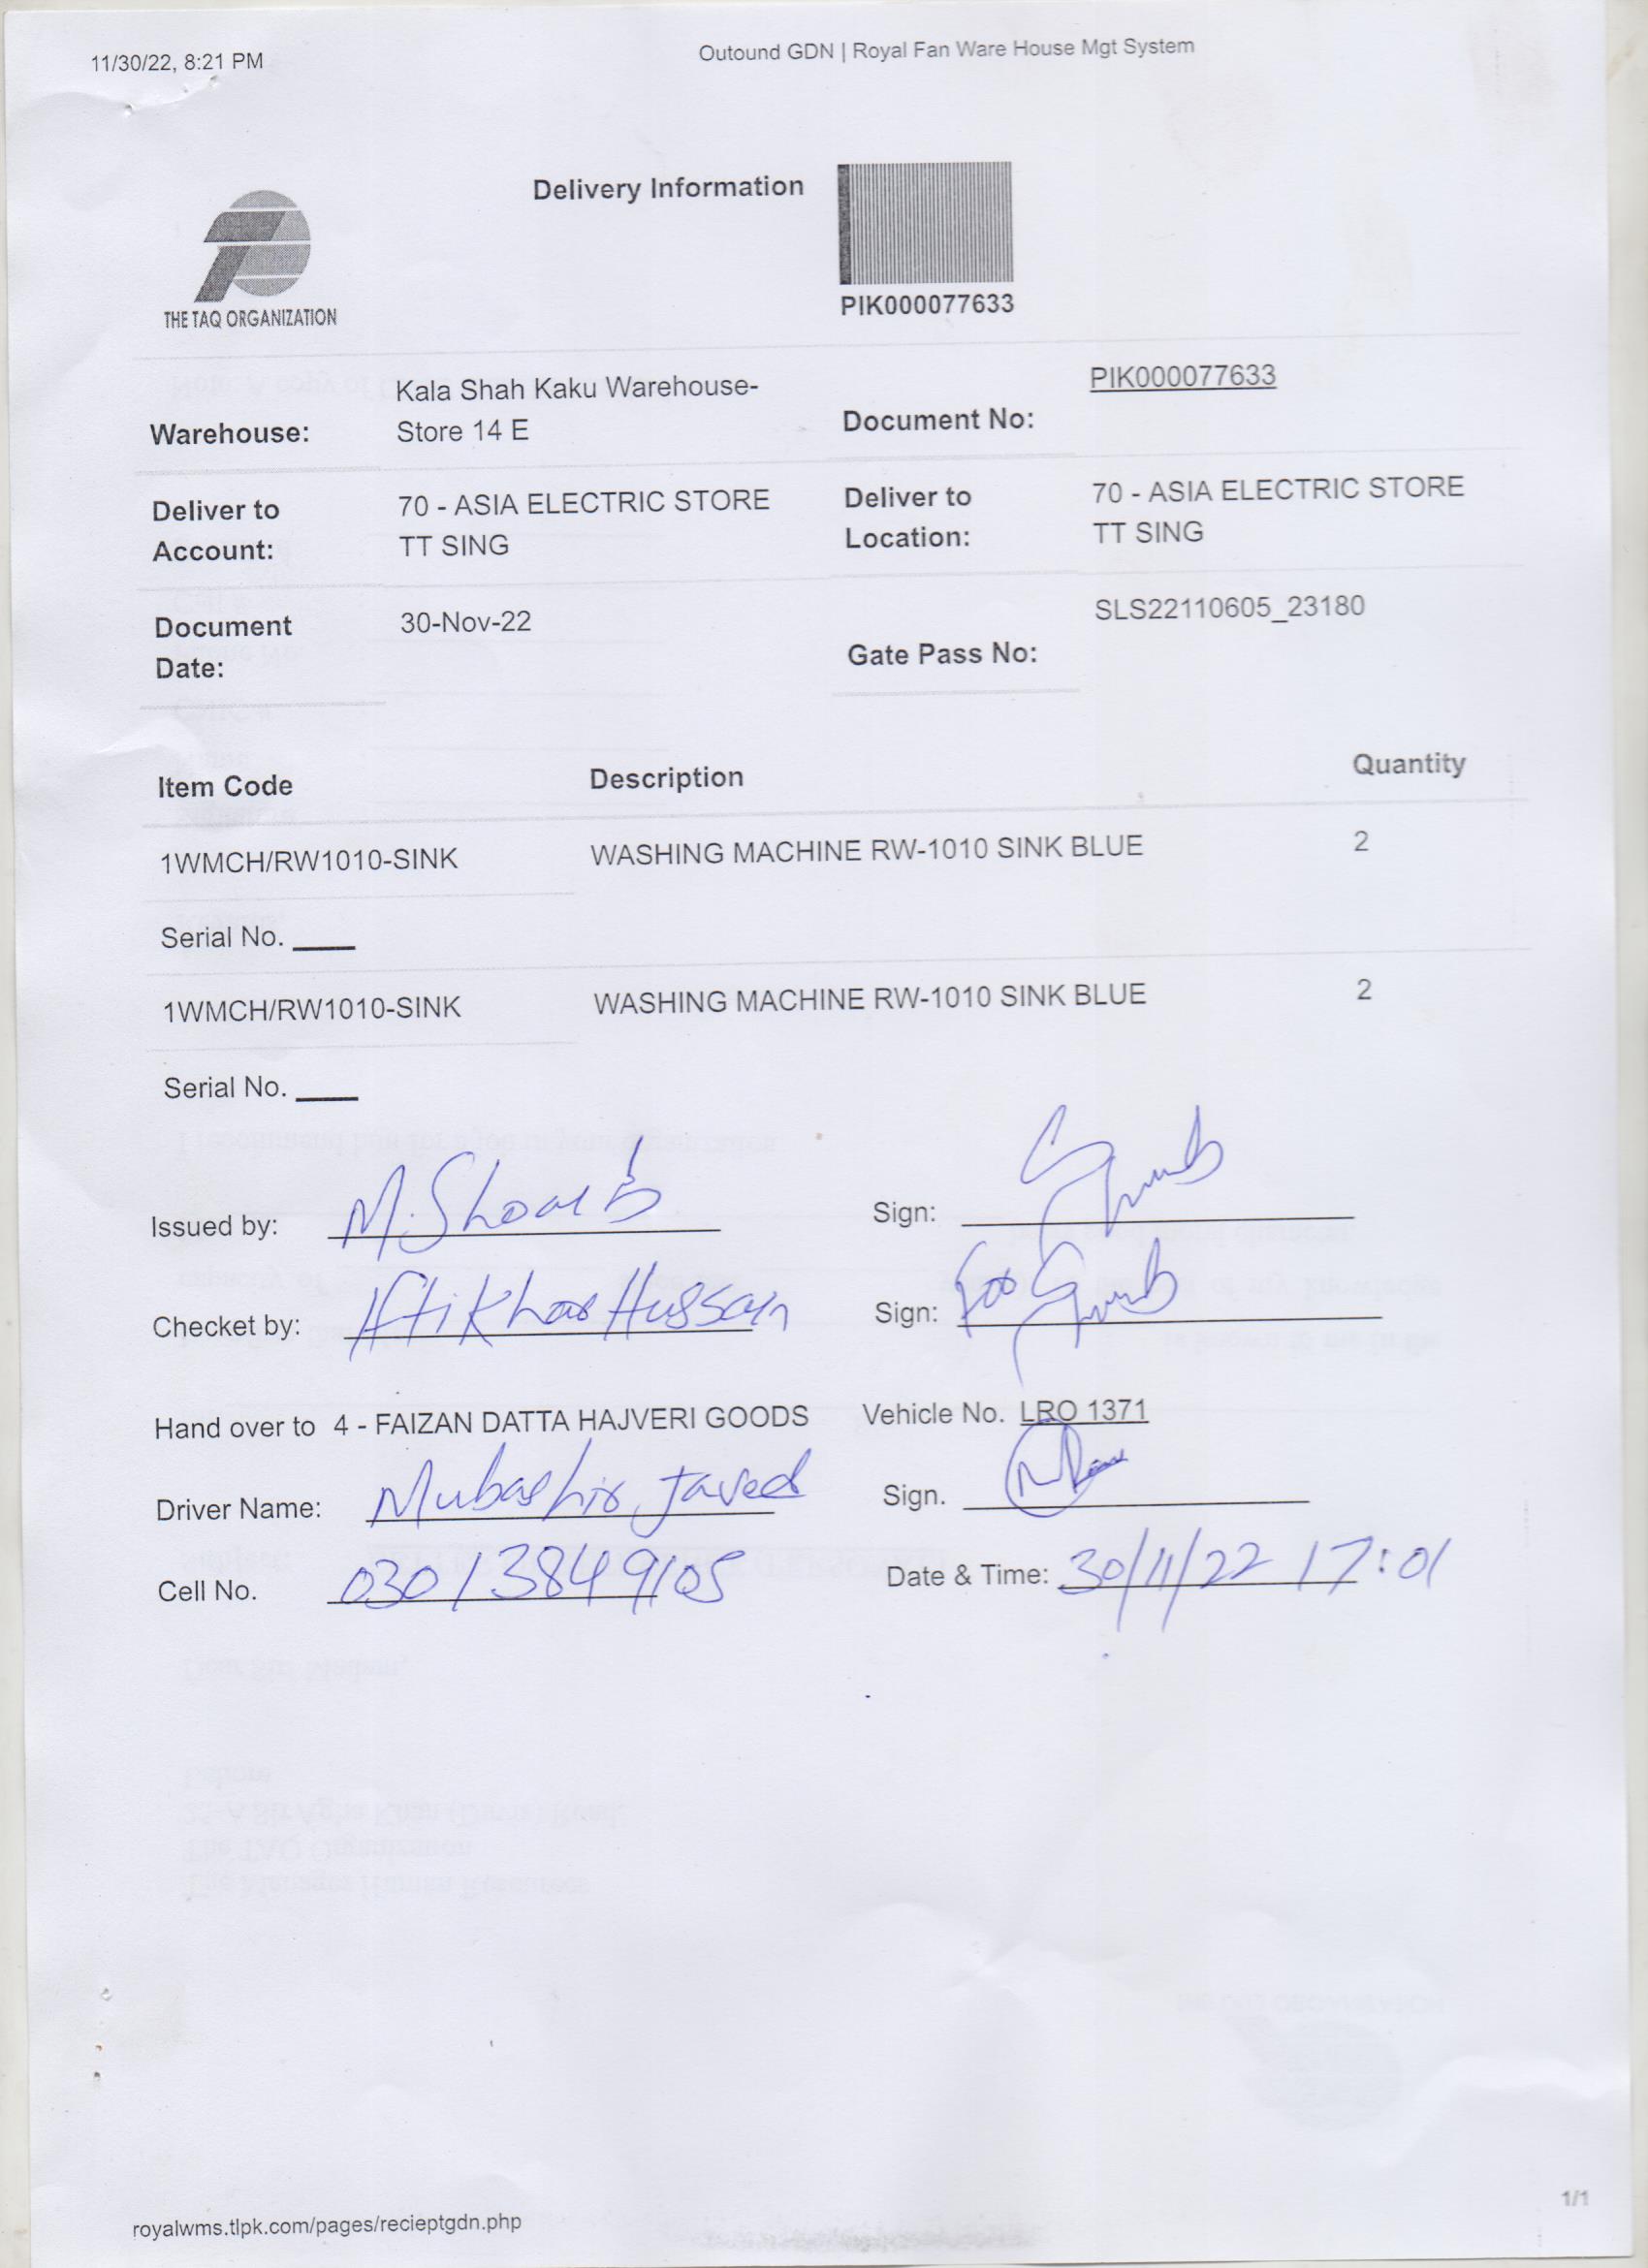 11/30/22, 8:21 PM
Outound GDN | Royal Fan Ware House Mgt System
Delivery Information
THE TAQ ORGANIZATION
PIK000077633
Warehouse: Kala Shah Kaku Warehouse-
Store 14 E
Document No: PIK000077633
Deliver to
Account: 70 - ASIA ELECTRIC STORE
TT SING
Deliver to
Location: 70 - ASIA ELECTRIC STORE
TT SING
Document
Date: 30-Nov-22
Gate Pass No: SLS22110605_23180
Item Code Description Quantity
1WMCH/RW1010-SINK WASHING MACHINE RW-1010 SINK BLUE 2
Serial No. ____
1WMCH/RW1010-SINK WASHING MACHINE RW-1010 SINK BLUE 2
Serial No. ____
Issued by: M. Shoaib Sign:
Checket by: Iftikhar Hussain Sign: For
Hand over to 4 - FAIZAN DATTA HAJVERI GOODS Vehicle No. LRO 1371
Driver Name: Mubashir Javed Sign.
Cell No. 03013849105 Date & Time: 30/11/22 17:01
royalwms.tlpk.com/pages/recieptgdn.php
1/1